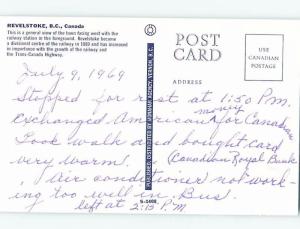 REVELSTOKE, B.C., Canada
This is a general view of the town facing west with the
railway station in the foreground. Revelstoke became
a divisional centre of the railway in 1899 and has increased
in importance with the growth of the railway and
the Trans-Canada Highway.
POST
CARD
USE
CANADIAN
POSTAGE
ADDRESS
July 9, 1969
Stopped for rest at 1:50 P.M.
money
exchanged American for Canadian
Took walk and bought card
very warm. (Canadian Royal Bank
Air conditioner not work-
ing too well in Bus.
left at 2:15 P.M
PUBLISHED, DISTRIBUTED BY
VERNON, B.C.